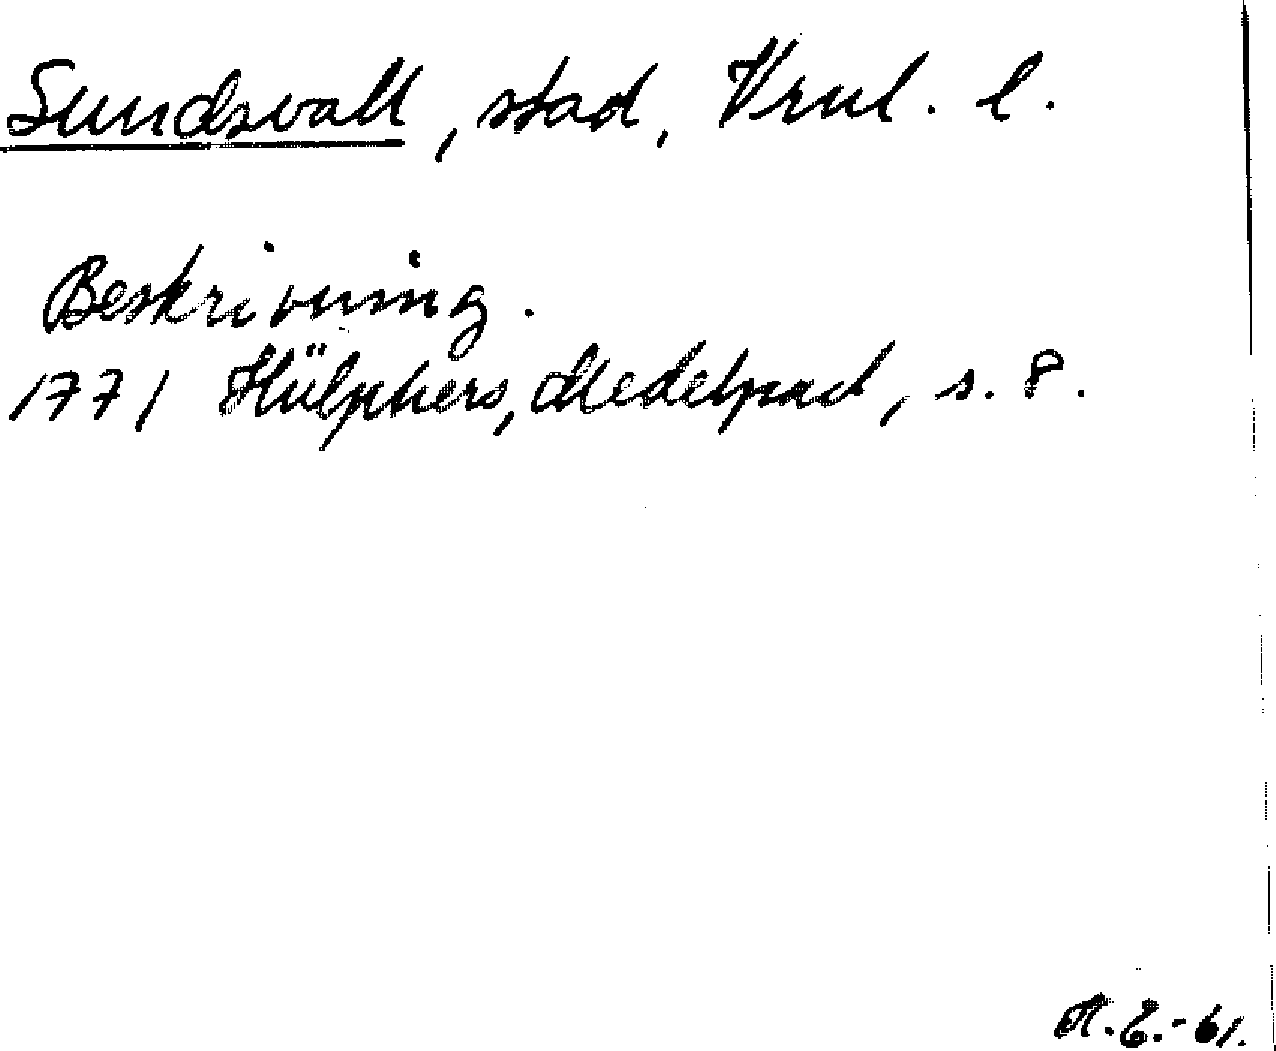 Sundsvall, stad, Vrnl. l.
Beskrivning.
1771 Hülphers, Medelpad, s. 8.
H. E. - 61.